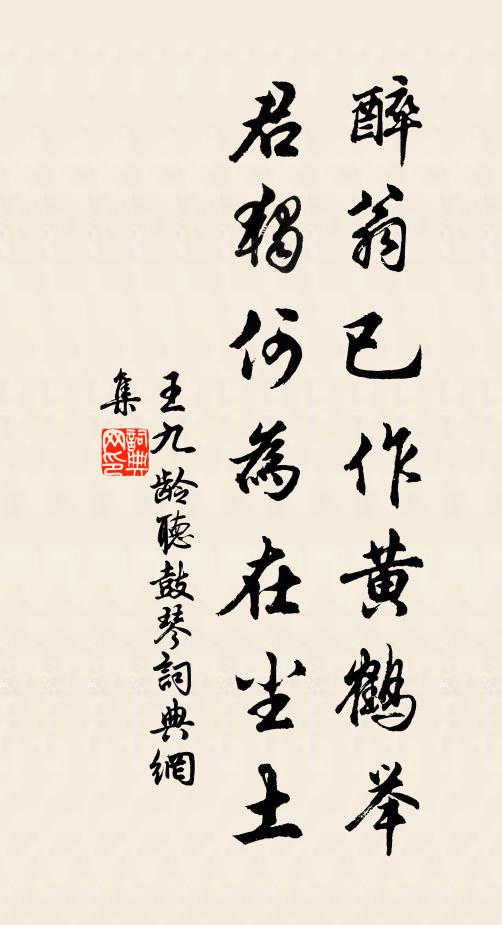 醉翁已作黄鹤举
君独何為在尘土
王九龄聽鼓琴詞典網
集
詞典网印